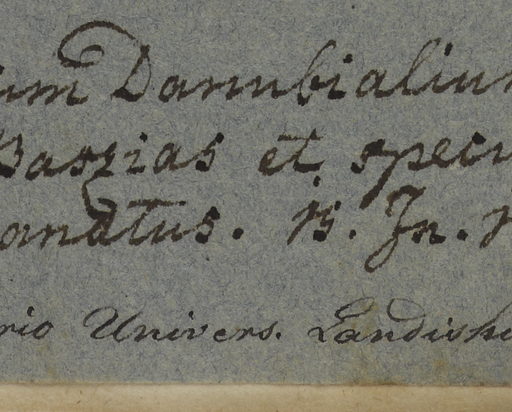 um Danubialium
Baszias et specu
onatus. 15. Jn.
rio Univers. Landishu